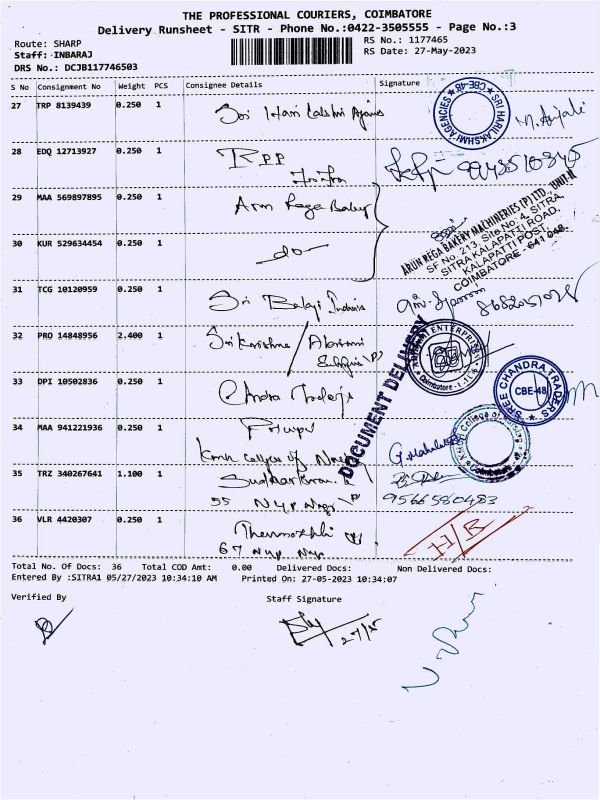 THE PROFESSIONAL COURIERS, COIMBATORE
Delivery Runsheet - SITR - Phone No.:0422-3505555 - Page No.:3
Route: SHARP
Staff: INBARAJ
DRS No.: DCJB117746503
RS No.: 1177465
RS Date: 27-May-2023
S No Consignment No Weight PCS Consignee Details Signature
27 TRP 8139439 0.250 1 Sri Hari Lakshmi
SRI HARILAKSHMI AGENCIES CBE-48
28 EDQ 12713927 0.250 1 RPP
Infra
29 MAA 569897895 0.250 1 Arun Rega Bakery
30 KUR 529634454 0.250 1 do
ARUN REGA BAKERY MACHINERIES (P) LTD., UNIT-II
SF No. 213, Site No: 4, SITRA,
SITRA KALAPATTI ROAD,
KALAPATTI POST,
COIMBATORE - 641 048.
31 TCG 10120959 0.250 1 Sri Balaji
32 PRO 14848956 2.400 1 Sri Krishna / Abirami
DOCUMENT DELIVERY
33 DPI 10502836 0.250 1 Chandra Traders
SREE CHANDRA TRADERS CBE-48
34 MAA 941221936 0.250 1
kmch college of Nursing
35 TRZ 340267641 1.100 1
55 NGP Nagar
9566580483
36 VLR 4420307 0.250 1
67
Total No. Of Docs: 36 Total COD Amt: 0.00 Delivered Docs: Non Delivered Docs:
Entered By :SITRA1 05/27/2023 10:34:10 AM Printed On: 27-05-2023 10:34:07
Verified By Staff Signature
27/5